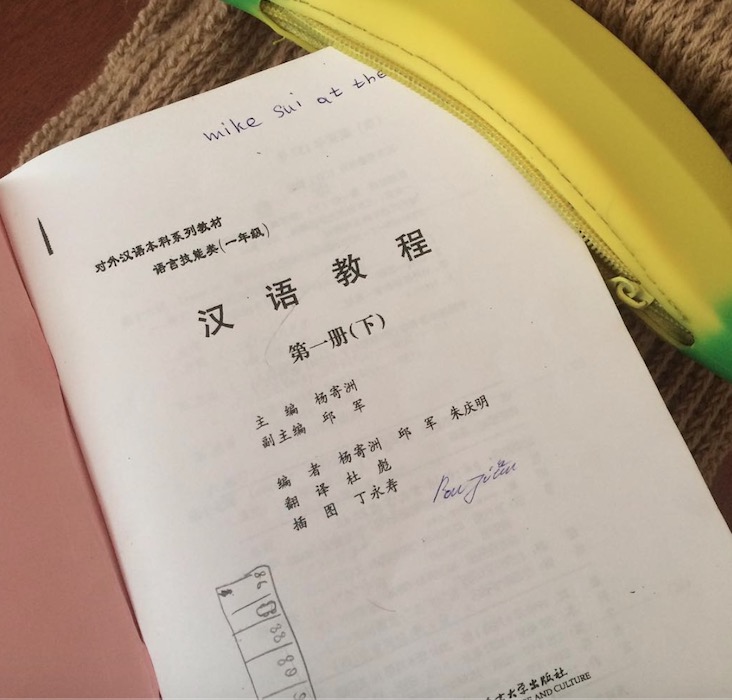 mike sui at the
对外汉语本科系列教材
语言技能类(一年级)
汉语教程
第一册(下)
主编 杨寄洲
副主编 邱军
编者 杨寄洲 邱军 朱庆明
翻译 杜彪
插图 丁永寿
86
88
89
大学出版社
AND CULTURE